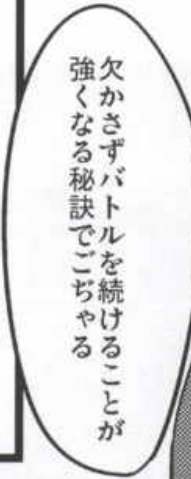 欠かさずバトルを続けることが
強くなる秘訣でごぢゃる